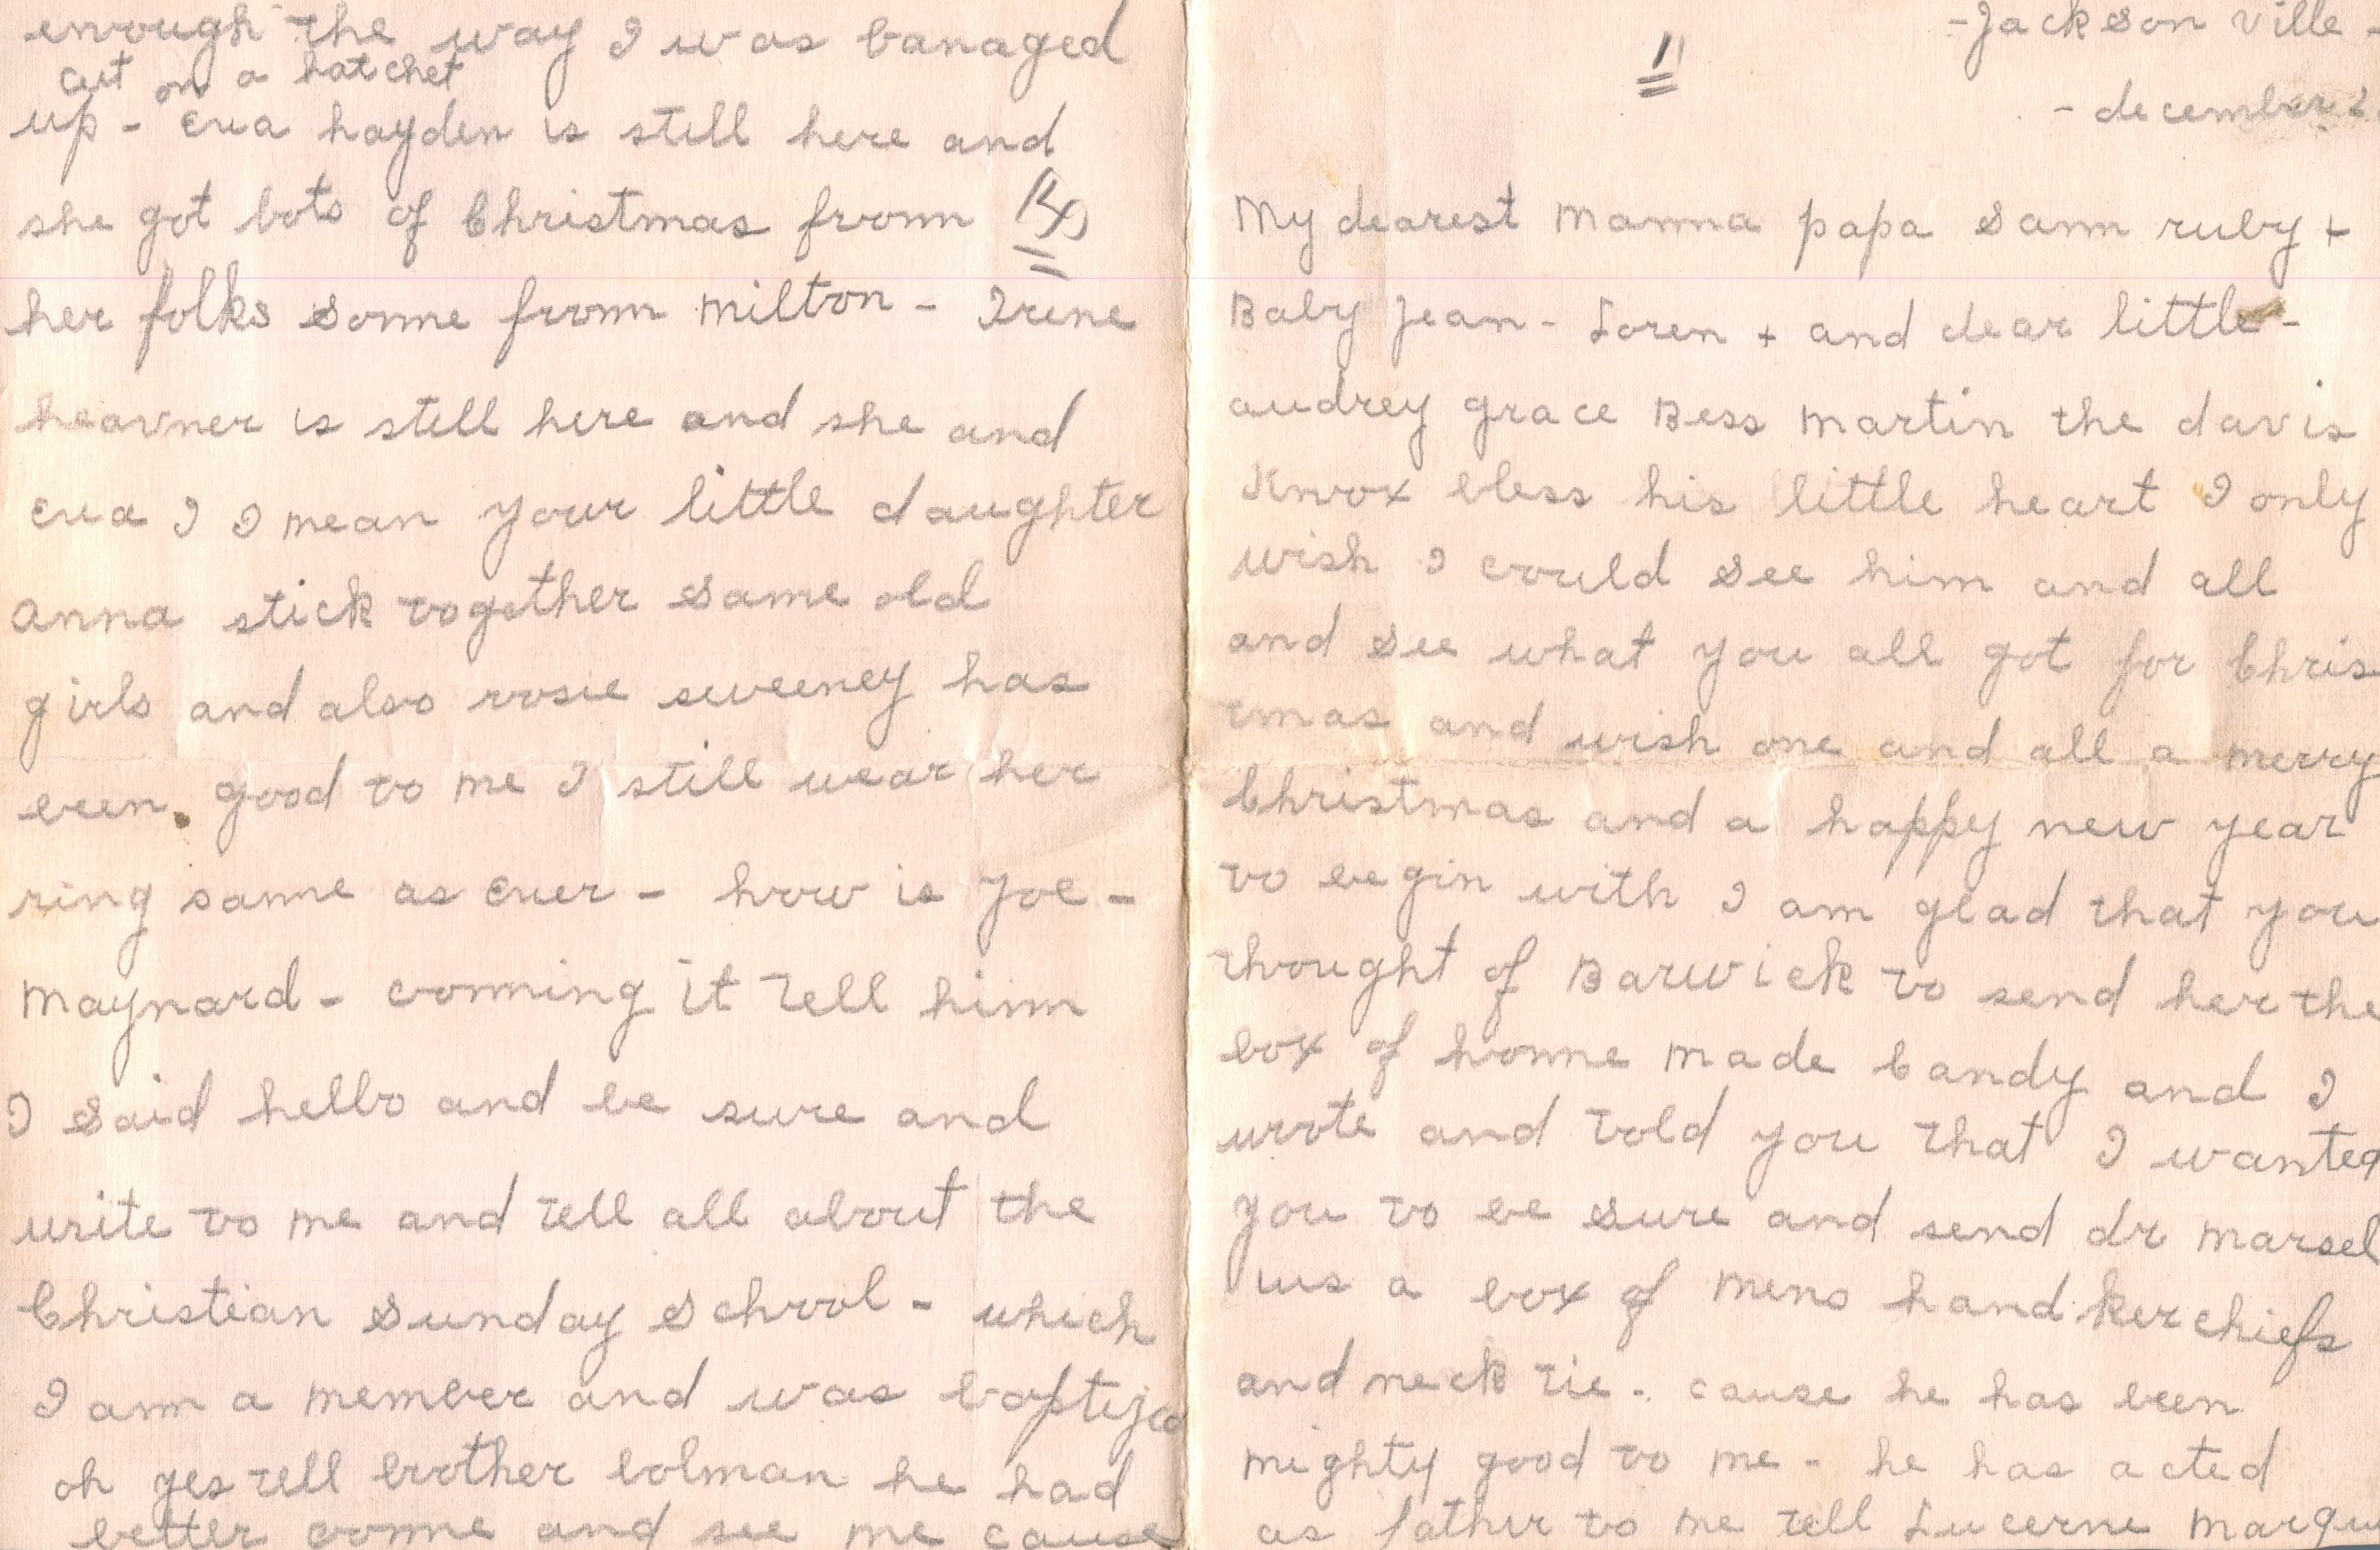 enough the way I was banaged
cut on a hatchet
up - Eva hayden is still here and
she got lots of Christmas fromm
her folks somme fromm milton - Irene
heavner is still here and she and
Eva I I mean your little daughter
anna stick together same old
girls and also rosie sweeney has
been good to me I still wear her
ring samme as Ever - how is Joe -
maynard - comming it tell himm
I said hello and be sure and
write to me and tell all about the
Christian Sunday School - which
I amm a member and was baptized
oh yes tell brother bolman he had
better comme and see me cause
1
-Jackson ville -
- december 2
My dearest mamma papa samm ruby +
Baby Jean - Loren + and dear little -
audrey grace Bess martin the davis
Knox bless his little heart I only
wish I could see him and all
and see what you all got for Chris
tmas and wish one and all a merry
Christmas and a happy new year
to begin with I am glad that you
thought of Barwick to send her the
box of homme made Candy and I
wrote and told you that I wanted
you to be sure and send dr marsel
us a box of mens handkerchiefs
and neck tie - cause he has been
mighty good to me - he has acted
as father to me tell Lucerne marqu